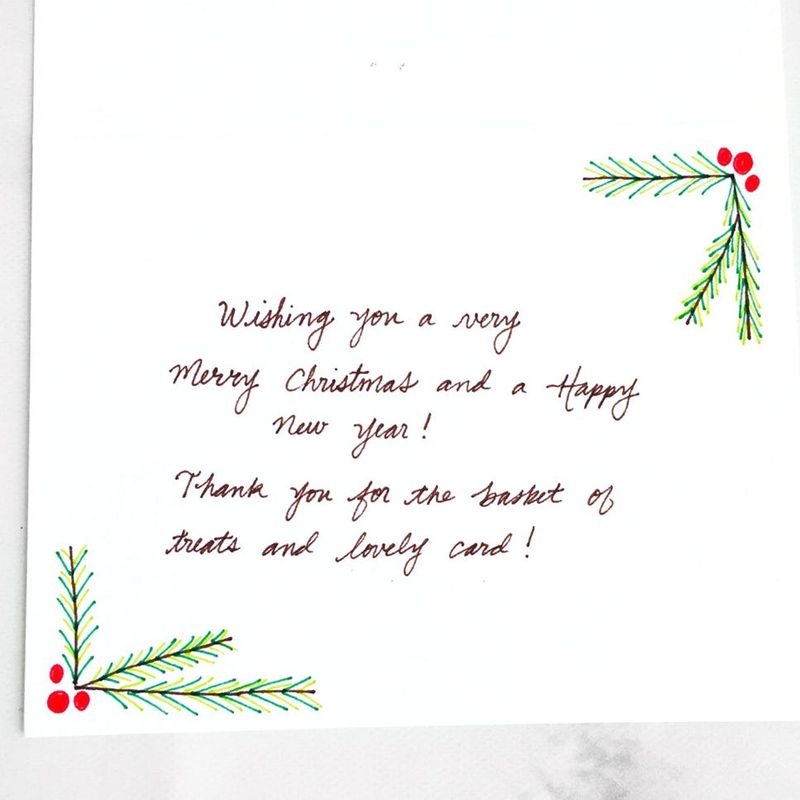 Wishing you a very
Merry Christmas and a Happy
New Year!
Thank you for the basket of
treats and lovely card!